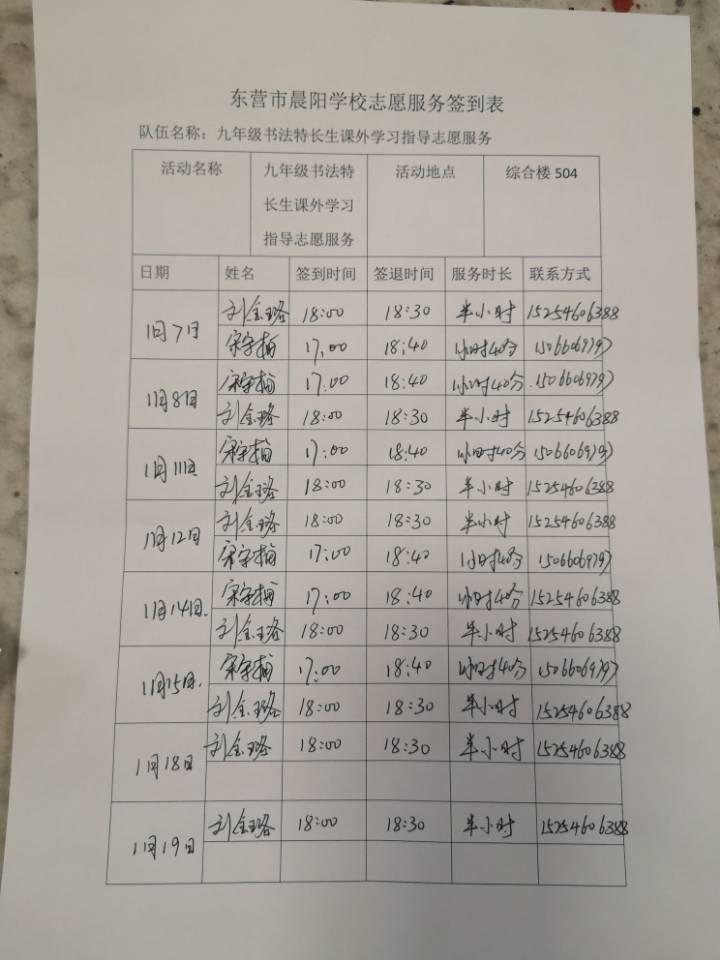 东营市晨阳学校志愿服务签到表
队伍名称：九年级书法特长生课外学习指导志愿服务
活动名称 九年级书法特 活动地点 综合楼 504
长生课外学习
指导志愿服务
日期 姓名 签到时间 签退时间 服务时长 联系方式
11月7日 刘金璐 18:00 18:30 半小时 15254606388
宋字梅 17:00 18:40 1小时40分
11月8日 宋字梅 17:00 18:40 1小时40分
刘金璐 18:00 18:30 半小时 15254606388
11月11日 宋字梅 17:00 18:40 1小时40分
刘金璐 18:00 18:30 半小时 15254606388
11月12日 刘金璐 18:00 18:30 半小时 15254606388
宋字梅 17:00 18:40 1小时40分
11月14日 宋字梅 17:00 18:40 1小时40分 15254606388
刘金璐 18:00 18:30 半小时 15254606388
11月15日 宋字梅 17:00 18:40 1小时40分
刘金璐 18:00 18:30 半小时 15254606388
11月18日 刘金璐 18:00 18:30 半小时 15254606388
11月19日 刘金璐 18:00 18:30 半小时 15254606388